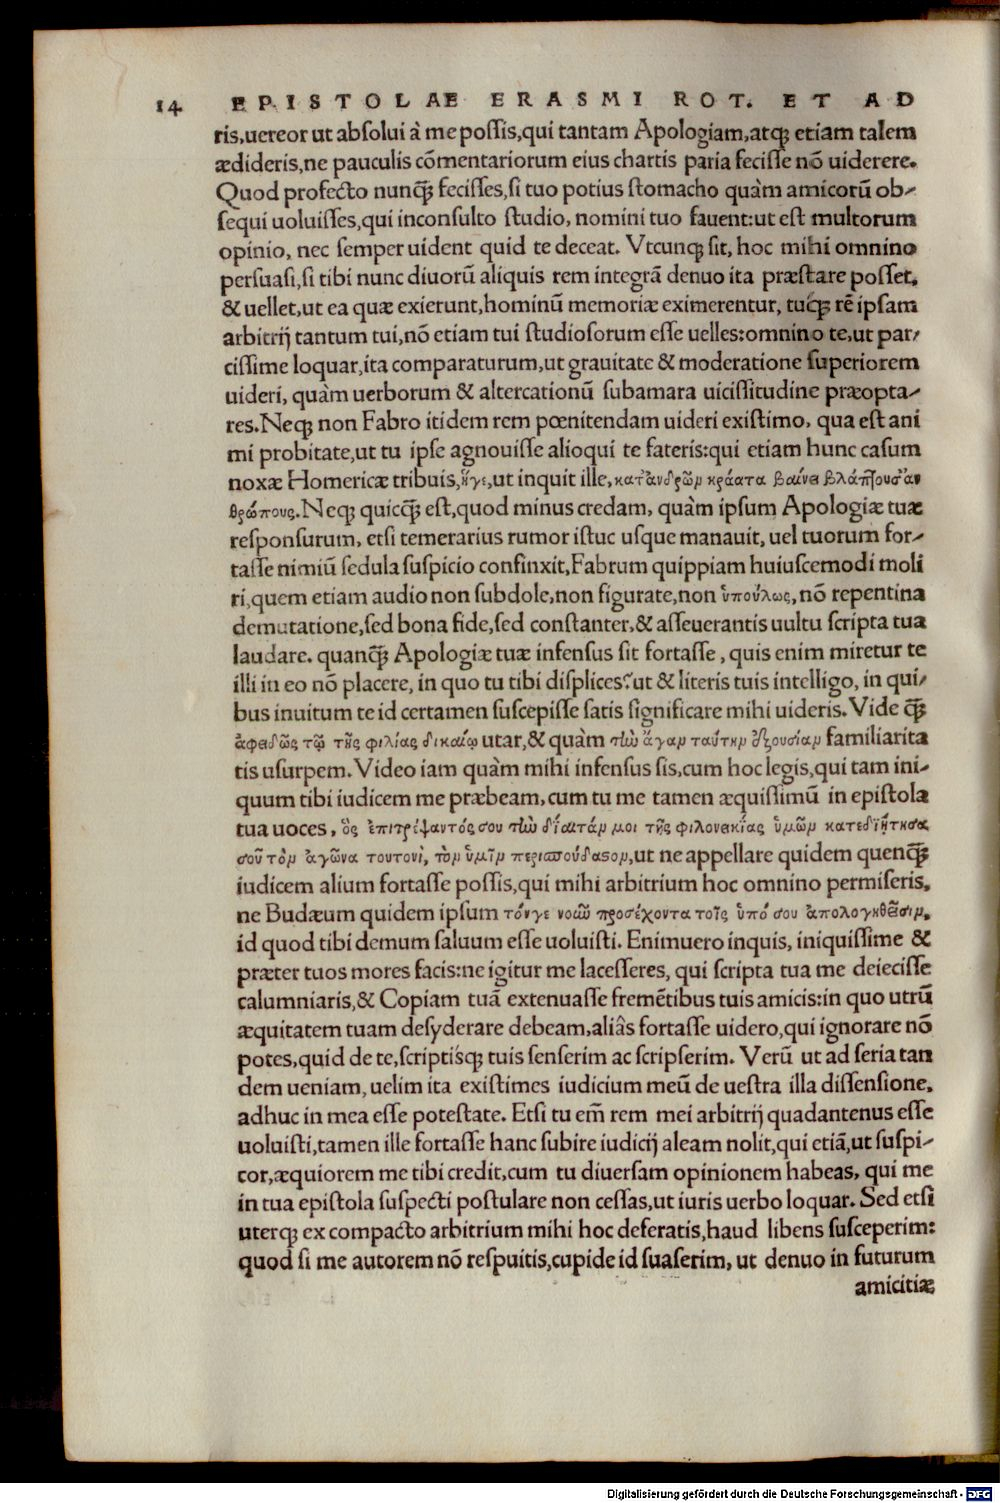 14 EPISTOLAE ERASMI ROT. ET AD
ris,uereor ut absolui à me possis,qui tantam Apologiam,atqꝫ etiam talem
ædideris,ne pauculis cõmentariorum eius chartis paria fecisse nõ uiderere.
Quod profecto nunq̃ꝫ fecisses,si tuo potius stomacho quàm amicorũ ob-
sequi uoluisses,qui inconsulto studio, nomini tuo fauent:ut est multorum
opinio, nec semper uident quid te deceat. Vtcunqꝫ sit, hoc mihi omnino
persuasi,si tibi nunc diuorũ aliquis rem integrã denuo ita præstare posset,
& uellet,ut ea quæ exierunt,hominũ memoriæ eximerentur, tuq́ꝫ rẽ ipsam
arbitrij tantum tui,nõ etiam tui studiosorum esse uelles:omnino te,ut par-
cissime loquar,ita comparaturum,ut grauitate & moderatione superiorem
uideri, quàm uerborum & altercationũ subamara uicissitudine præopta-
res.Neqꝫ non Fabro itidem rem pœnitendam uideri existimo, qua est ani
mi probitate,ut tu ipse agnouisse alioqui te fateris:qui etiam hunc casum
noxæ Homericæ tribuis,ἥγε,ut inquit ille, κατ᾽ἀνδρῶν κράατα βαίνει βλάπτουσ᾽ἀν
θρώπους.Neqꝫ quicq̃ꝫ est,quod minus credam, quàm ipsum Apologiæ tuæ
responsurum, etsi temerarius rumor istuc usque manauit, uel tuorum for-
tasse nimiũ sedula suspicio confinxit,Fabrum quippiam huiuscemodi moli
ri,quem etiam audio non subdole,non figurate,non ὑπούλως, nõ repentina
demutatione,sed bona fide,sed constanter,& asseuerantis uultu scripta tua
laudare. quanq̃ꝫ Apologiæ tuæ infensus sit fortasse, quis enim miretur te
illi in eo nõ placere, in quo tu tibi displices? ut & literis tuis intelligo, in qui-
bus inuitum te id certamen suscepisse satis significare mihi uideris. Vide q̃ꝫ
ἀφειδῶς τῷ τῆς φιλίας δικαίῳ utar,& quàm τὴν ἄγαν ταύτην ἐξουσίαν familiarita
tis usurpem. Video iam quàm mihi infensus sis,cum hoc legis,qui tam ini-
quum tibi iudicem me præbeam,cum tu me tamen æquissimũ in epistola
tua uoces, ὃς ἐπιτρέψαντός σου τὴν δίαιτάν μοι τῆς φιλονεικίας ὑμῶν κατεδιῄτησα
σοῦ τὸν ἀγῶνα τουτονὶ, τὸν ὑμῖν περισπούδαστον,ut ne appellare quidem quenq̃ꝫ
iudicem alium fortasse possis,qui mihi arbitrium hoc omnino permiseris,
ne Budæum quidem ipsum τόνγε νοῦν προσέχοντα τοῖς ὑπό σου ἀπολογηθεῖσιν,
id quod tibi demum saluum esse uoluisti. Enimuero inquis, iniquissime &
præter tuos mores facis:ne igitur me lacesseres, qui scripta tua me deiecisse
calumniaris,& Copiam tuã extenuasse fremẽtibus tuis amicis:in quo utrũ
æquitatem tuam desyderare debeam,aliâs fortasse uidero,qui ignorare nõ
potes,quid de te,scriptisq́ꝫ tuis senserim ac scripserim. Verũ ut ad seria tan
dem ueniam, uelim ita existimes iudicium meũ de uestra illa dissensione,
adhuc in mea esse potestate. Etsi tu em̃ rem mei arbitrij quadantenus esse
uoluisti,tamen ille fortasse hanc subire iudicij aleam nolit,qui etiã,ut suspi-
cor,æquiorem me tibi credit,cum tu diuersam opinionem habeas, qui me
in tua epistola suspecti postulare non cessas,ut iuris uerbo loquar. Sed etsi
uterqꝫ ex compacto arbitrium mihi hoc deferatis,haud libens susceperim:
quod si me autorem nõ respuitis,cupide id suaserim, ut denuo in futurum
amicitiæ
Digitalisierung gefördert durch die Deutsche Forschungsgemeinschaft - DFG